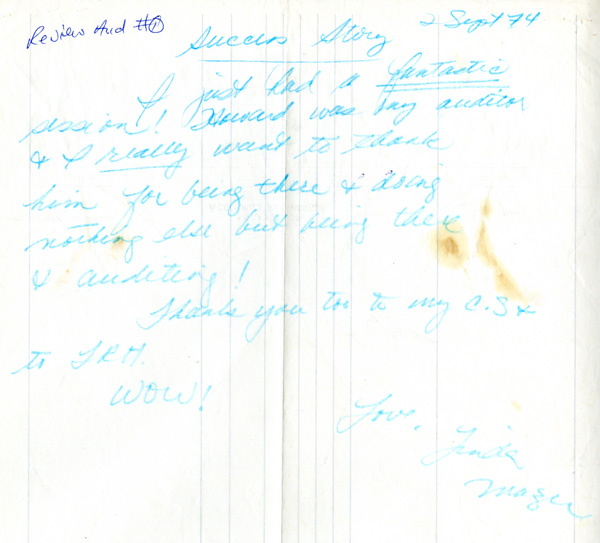 Review Aud #1
2 Sept 74
Success Story
I just had a fantastic
session! Howard was my auditor
& I really want to thank
him for being there & doing
nothing else but being there
& auditing!
Thank you too to my C.S. &
to LRH.
WOW!
Love,
Linda